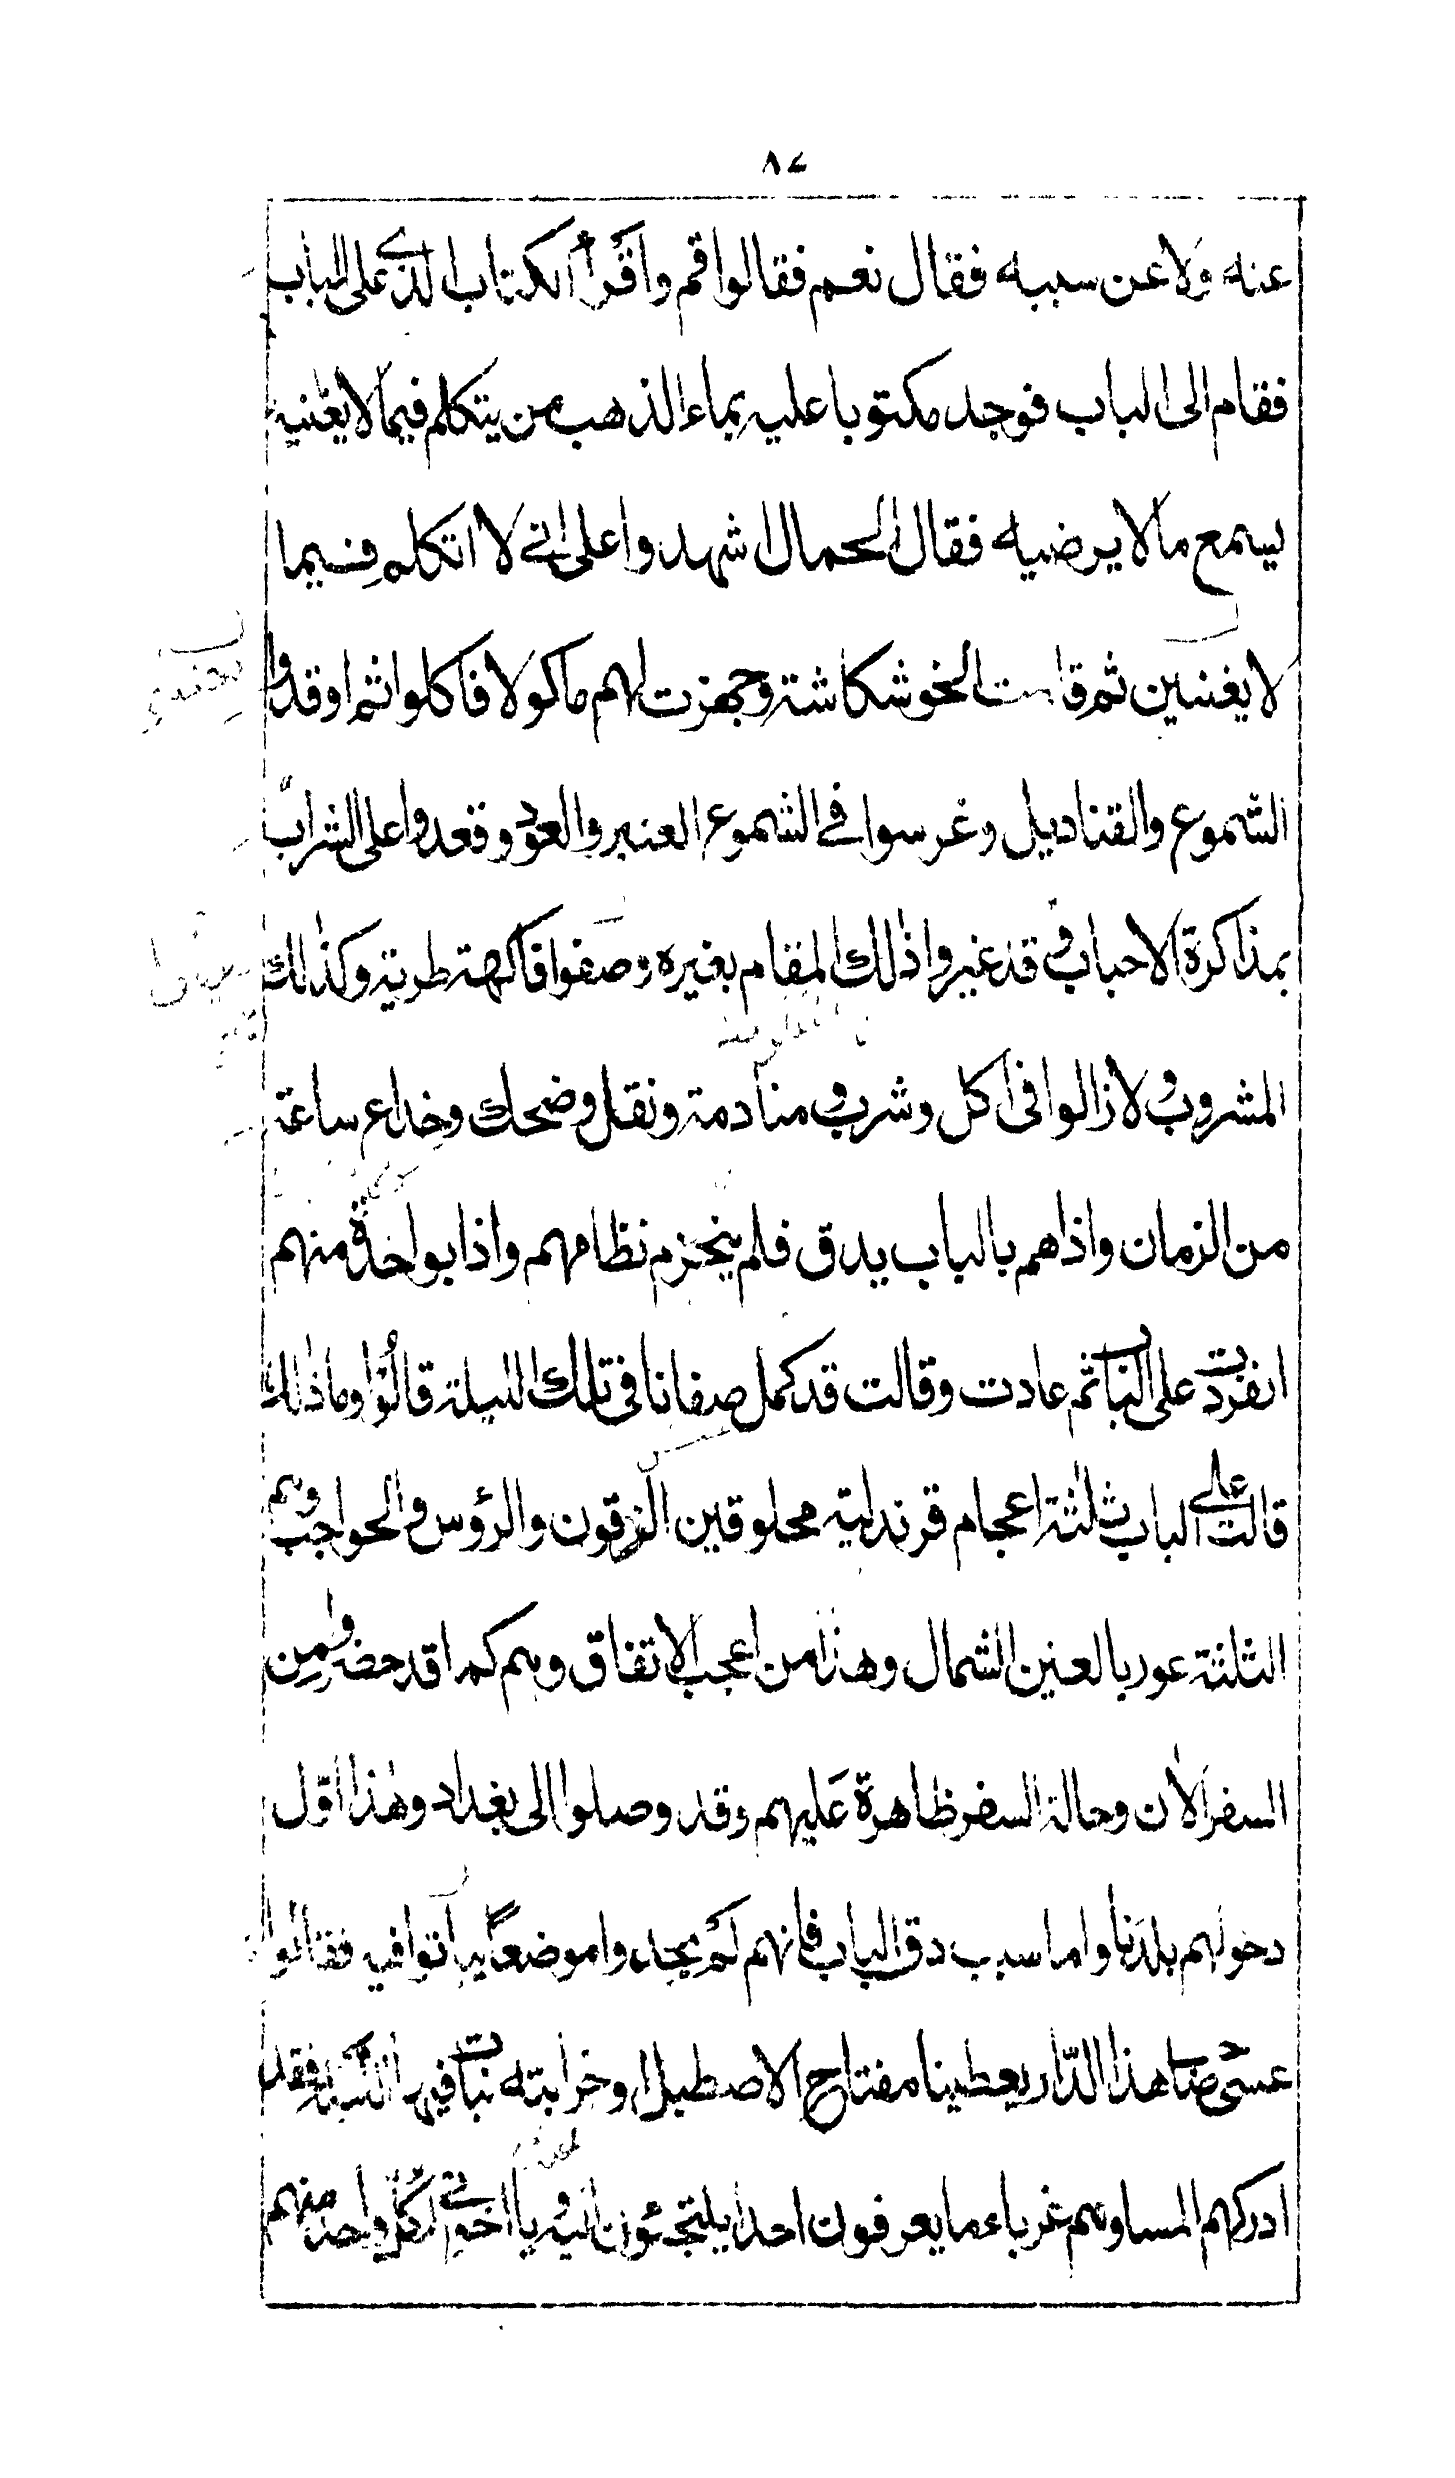 ٨٧
عنه ولا عن سببه فقال نعم فقالوا قم واقرأ الكتاب الذي على الباب
فقام الى الباب فوجد مكتوبا عليه بماء الذهب من يتكلم فيما لا يعنيه
يسمع ما لا يرضيه فقال الحمال اشهدوا على اني لا اتكلم فيما
لا يغنين ثم قامت الخوشكاشة وجهزت لهم ماكولا فاكلوا ثم اوقدوا
الشموع والقناديل وغرسوا في الشموع العنبر والعود وقعدوا على الشراب
بمذاكرة الاحباب وقد غيروا ذلك المقام بغيره وصفوا فاكهة طرية وكذلك
المشروب ولا زالوا في اكل وشرب ومنادمة ونقل وضحك وخداع ساعة
من الزمان واذا هم بالباب يدق فلم ينخزم نظامهم واذا بواحدة منهم
انفردت على الباب ثم عادت وقالت قد كمل صفانا في تلك الليلة قالوا وما ذلك
قالت على الباب ثلثة اعجام قرندلية محلوقين الزقون والرؤس والحواجب وهم
الثلثة عور بالعين الشمال وهذا من اعجب الاتفاق وهم كما قد حضروا من
السفر الآن وحالة السفر ظاهرة عليهم وقد وصلوا الى بغداد وهذا اول
دخولهم بلدنا واما سبب دق الباب فانهم لم يجدوا موضعا يباتوا فيه فقالوا
عسى صاحب هذا الدار يعطينا مفتاح الاصطبل او خرابته نبات فيها الليلة فقد
ادركهم المسا وهم غرباء ما يعرفون احدا يلتجئون اليه ويا اخوتي لكل واحد منهم